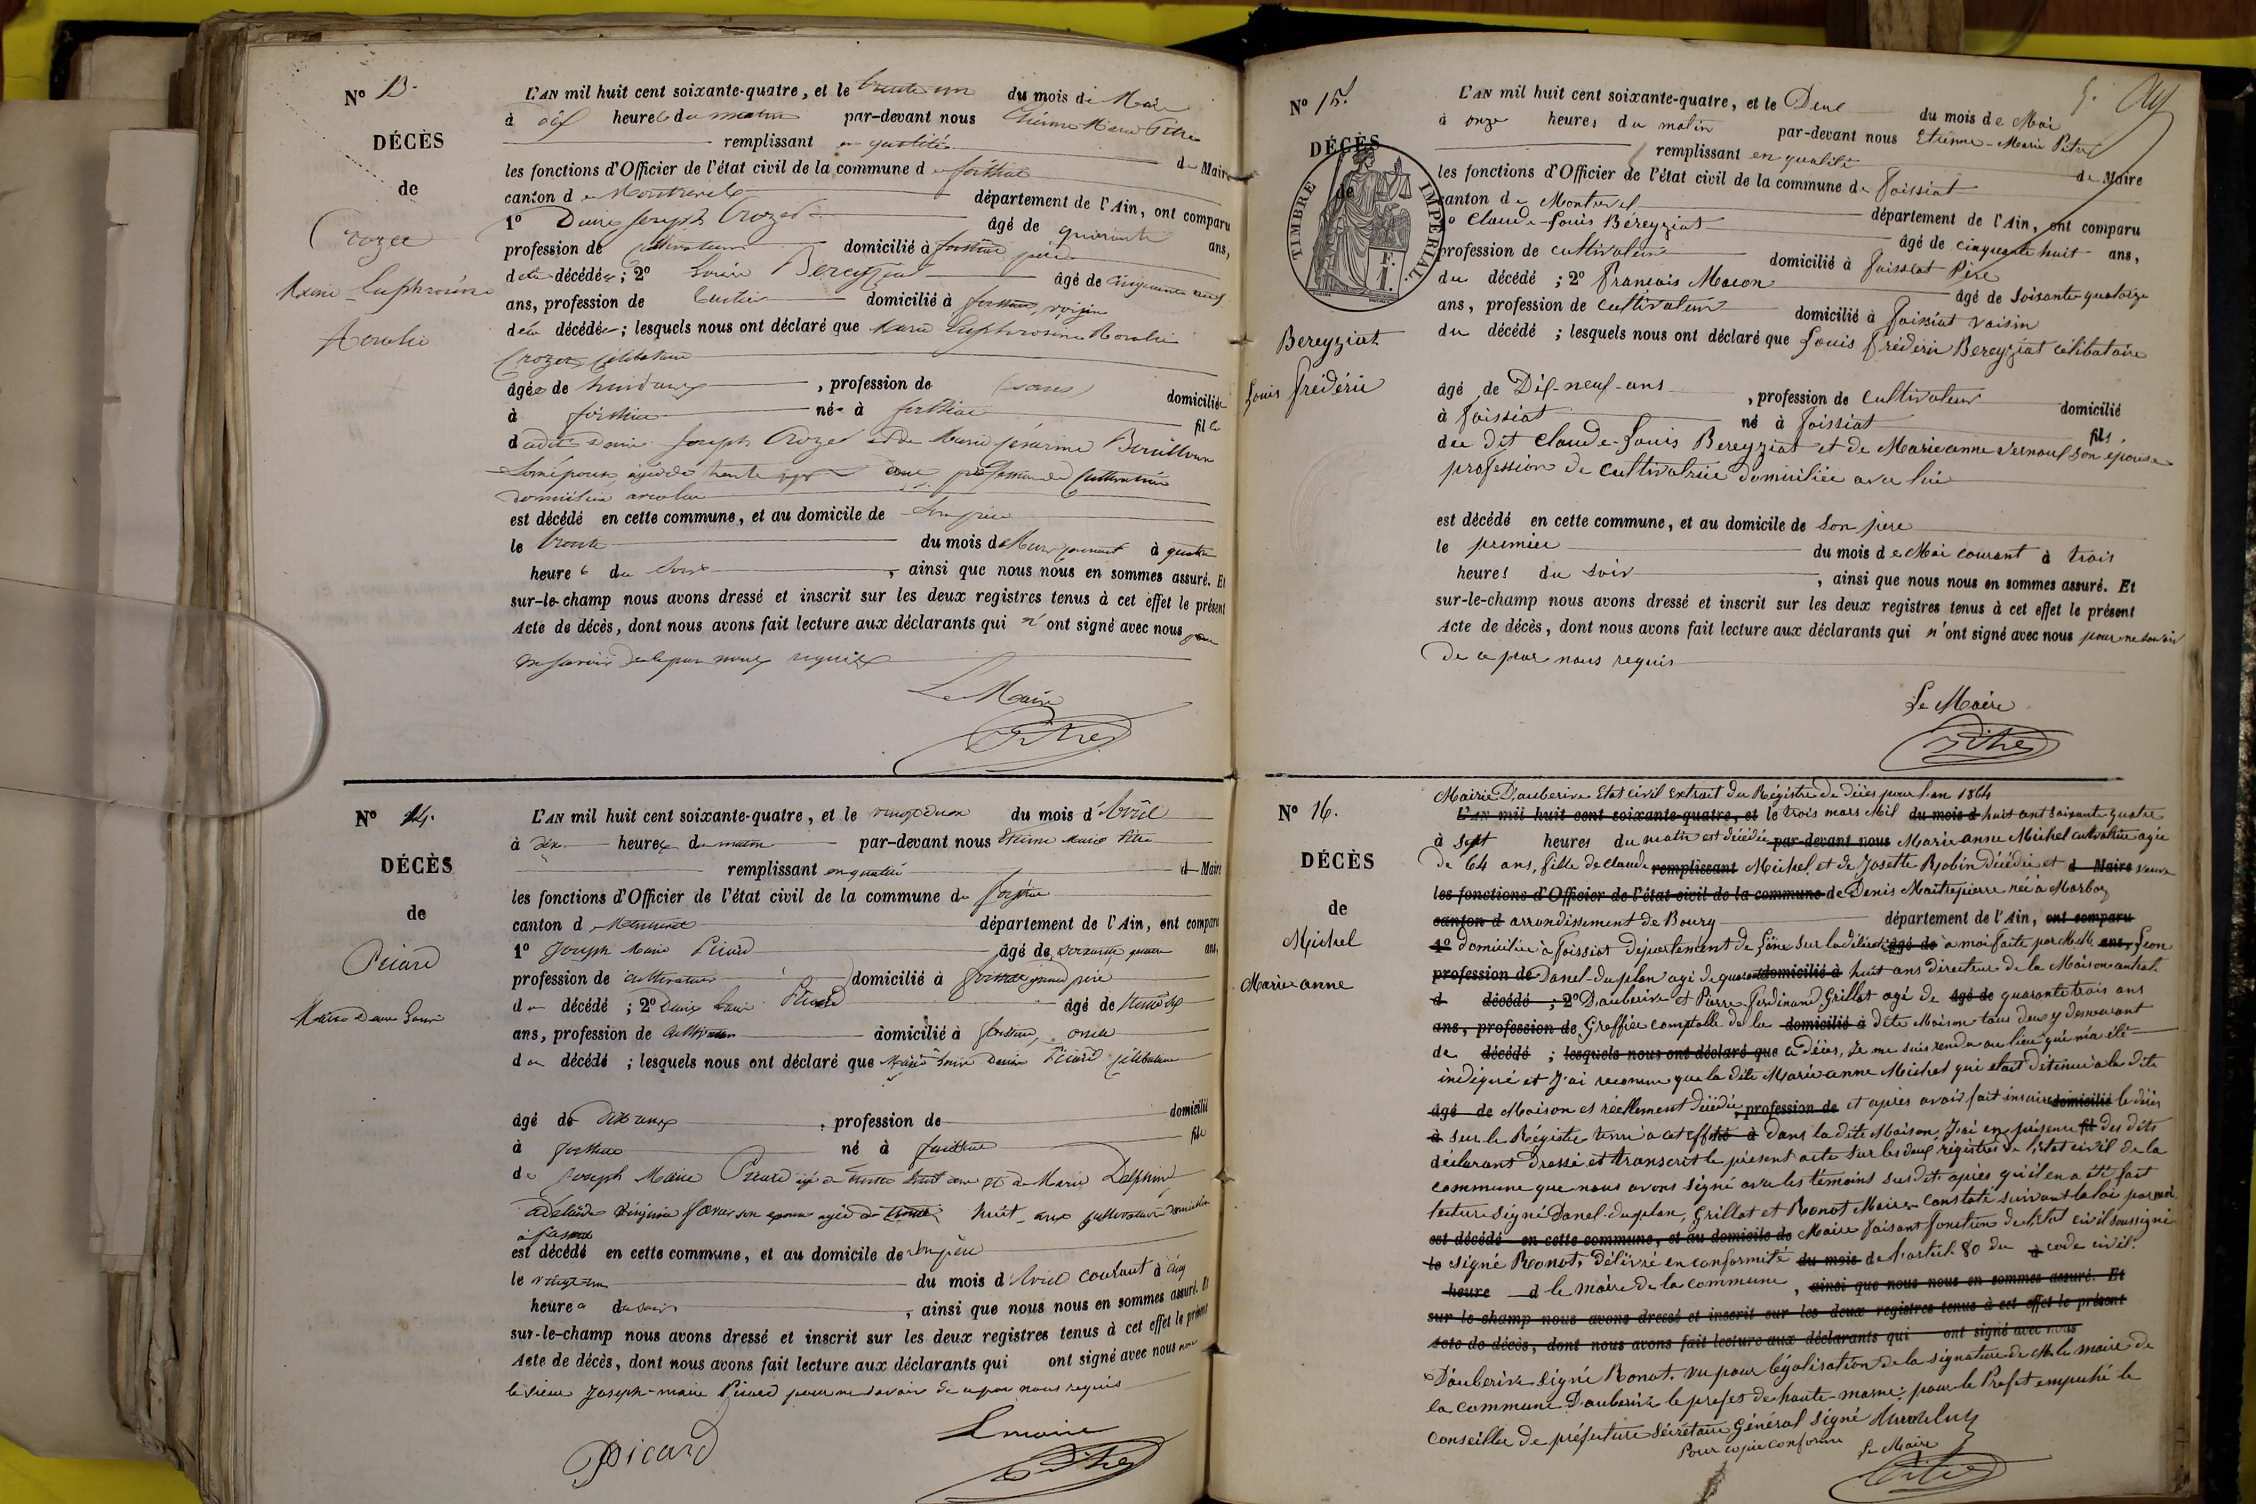 Nº 13.
DÉCÈS
de
Crozet
Marie-Euphrosine
L'AN mil huit cent soixante-quatre, et le trente un du mois de Mars
à dix heures du matin par-devant nous Etienne Marie Pitre
remplissant en qualité de Maire
les fonctions d'Officier de l'état civil de la commune de foissiat
canton de Montrevel département de l'Ain, ont comparu
1º Denis Joseph Crozet âgé de quarante ans,
profession de cultivateur domicilié à foissiat père
de la décédée; 2º Louis Bereyziat âgé de cinquante neuf
ans, profession de domicilié à foissiat, voisin
de la décédée; lesquels nous ont déclaré que Marie Euphrosine
Crozet Célibataire
âgée de ans, profession de (sans) domiciliée
à foissiat née à foissiat fille
dudit Denis Joseph Crozet et de Marie Césarine
son épouse, âgée de trente ans profession de Cultivatrice
domiciliée avec lui
est décédé en cette commune, et au domicile de son père
le trente du mois de Mars courant à quatre
heures du soir, ainsi que nous nous en sommes assuré. Et
sur-le-champ nous avons dressé et inscrit sur les deux registres tenus à cet effet le présent
Acte de décès, dont nous avons fait lecture aux déclarants qui n'ont signé avec nous pour
ne savoir de ce par nous requis
Le Maire
Pitre
Nº 14.
DÉCÈS
de
Picard
Marie Denis Louis
L'AN mil huit cent soixante-quatre, et le vingt deux du mois d'Avril
à dix heures du matin par-devant nous Etienne Marie Pitre
remplissant en qualité de Maire
les fonctions d'Officier de l'état civil de la commune de foissiat
canton de Montrevel département de l'Ain, ont comparu
1º Joseph Marie Picard âgé de soixante quatre ans,
profession de cultivateur domicilié à foissiat grand père
du décédé; 2º Denis Louis Picard âgé de trente six
ans, profession de cultivateur domicilié à foissiat, oncle
du décédé; lesquels nous ont déclaré que Marie Louis Denis Picard célibataire
âgé de dix ans, profession de domicilié
à foissiat né à foissiat fils
de Joseph Marie Picard âgé de trente huit ans et de Marie Delphine
Adélaïde son épouse âgée de trente huit ans cultivatrice domiciliée
à foissiat
est décédé en cette commune, et au domicile de son père
le vingt un du mois d'Avril courant à cinq
heures du soir, ainsi que nous nous en sommes assuré. Et
sur-le-champ nous avons dressé et inscrit sur les deux registres tenus à cet effet le présent
Acte de décès, dont nous avons fait lecture aux déclarants qui ont signé avec nous non
le sieur Joseph-marie Picard pour ne savoir de ce par nous requis
Picard
Le maire
Pitre
Nº 15.
DÉCÈS
de
TIMBRE IMPÉRIAL
Bereyziat
Louis Frédéric
L'AN mil huit cent soixante-quatre, et le Deux du mois de Mai
à onze heures du matin par-devant nous Etienne-Marie Pitre
remplissant en qualité de Maire
les fonctions d'Officier de l'état civil de la commune de Foissiat
canton de Montrevel département de l'Ain, ont comparu
1º Claude-Louis Béreyziat âgé de cinquante huit ans,
profession de cultivateur domicilié à Foissiat Père
du décédé; 2º François Macon âgé de soixante-quatorze
ans, profession de cultivateur domicilié à Foissiat voisin
du décédé; lesquels nous ont déclaré que Louis Frédéric Bereyziat célibataire
âgé de Dix-neuf-ans, profession de cultivateur domicilié
à Foissiat né à Foissiat fils
du dit Claude-Louis Bereyziat et de Marie anne Vernoux son épouse
profession de cultivatrice domiciliée avec lui
est décédé en cette commune, et au domicile de son père
le premier du mois de Mai courant à trois
heures du soir, ainsi que nous nous en sommes assuré. Et
sur-le-champ nous avons dressé et inscrit sur les deux registres tenus à cet effet le présent
Acte de décès, dont nous avons fait lecture aux déclarants qui n'ont signé avec nous pour ne savoir
De ce par nous requis
Le Maire
Pitre
Nº 16.
DÉCÈS
de
Michel
Marie anne
Mairie D'auberive Etat civil Extrait du Régistre de décès pour l'an 1864
L'AN mil huit cent soixante-quatre, et le trois mars Mil du mois d huit cent soixante quatre
à sept heures du matin est décédée par-devant nous Marie anne Michel cultivatrice agée
de 64 ans, fille de Claude remplissant Michel et de Josette Robin décédée et d Maire veuve
les fonctions d'Officier de l'état civil de la commune de Denis Maitrepierre née à Marboz
canton d arrondissement de Bourg département de l'Ain, ont comparu
1º domiciliée à Foissiat Département de l'aine Sur la déclaration âgé de à moi faite par M.M. ans, Léon
profession de Danel-duplan agé de quarante domicilié à huit ans directeur de la Maison centrale
d décédé; 2º D'auberive et Pierre Ferdinand Grillot agé de âgé de quarante trois ans
ans, profession de Greffier comptable de la domicilié à dite Maison tous deux y demeurant
de décédé; lesquels nous ont déclaré que ce décès, Je me suis rendu au lieu qui m'a été
indiqué et J'ai reconnu que la dite Marie anne Michel qui etait détenue à la dite
âgé de Maison es réellement décédée, profession de et après avoir fait inscrire domicilié le décès
à sur le Régistre tenu à cet effet né à dans la dite Maison, J'ai en présence fil des dits
déclarant dressé et transcrit le présent acte sur les deux régistres de l'état civil de la
commune que nous avons signé avec les témoins susdits après qu'il en a été fait
lecture signé Danel-duplan, Grillot et Ronot Maire. Constaté suivant la loi par moi
est décédé en cette commune, et au domicile de Maire faisant fonction de l'Etat civil soussigné
le signé Ronot, Délivré en conformité du mois de l'article 80 du à code civil.
heure d le maire de la commune, ainsi que nous nous en sommes assuré. Et
sur-le-champ nous avons dressé et inscrit sur les deux registres tenus à cet effet le présent
Acte de décès, dont nous avons fait lecture aux déclarants qui ont signé avec nous
D'auberive signé Ronot. Vu pour légalisation de la signature de M. le maire de
la commune D'auberive le préfet de haute-marne: pour le Préfet empêché le
conseiller de préfecture Sécrétaire Général signé
Pour copie conforme
Le Maire
Pitre